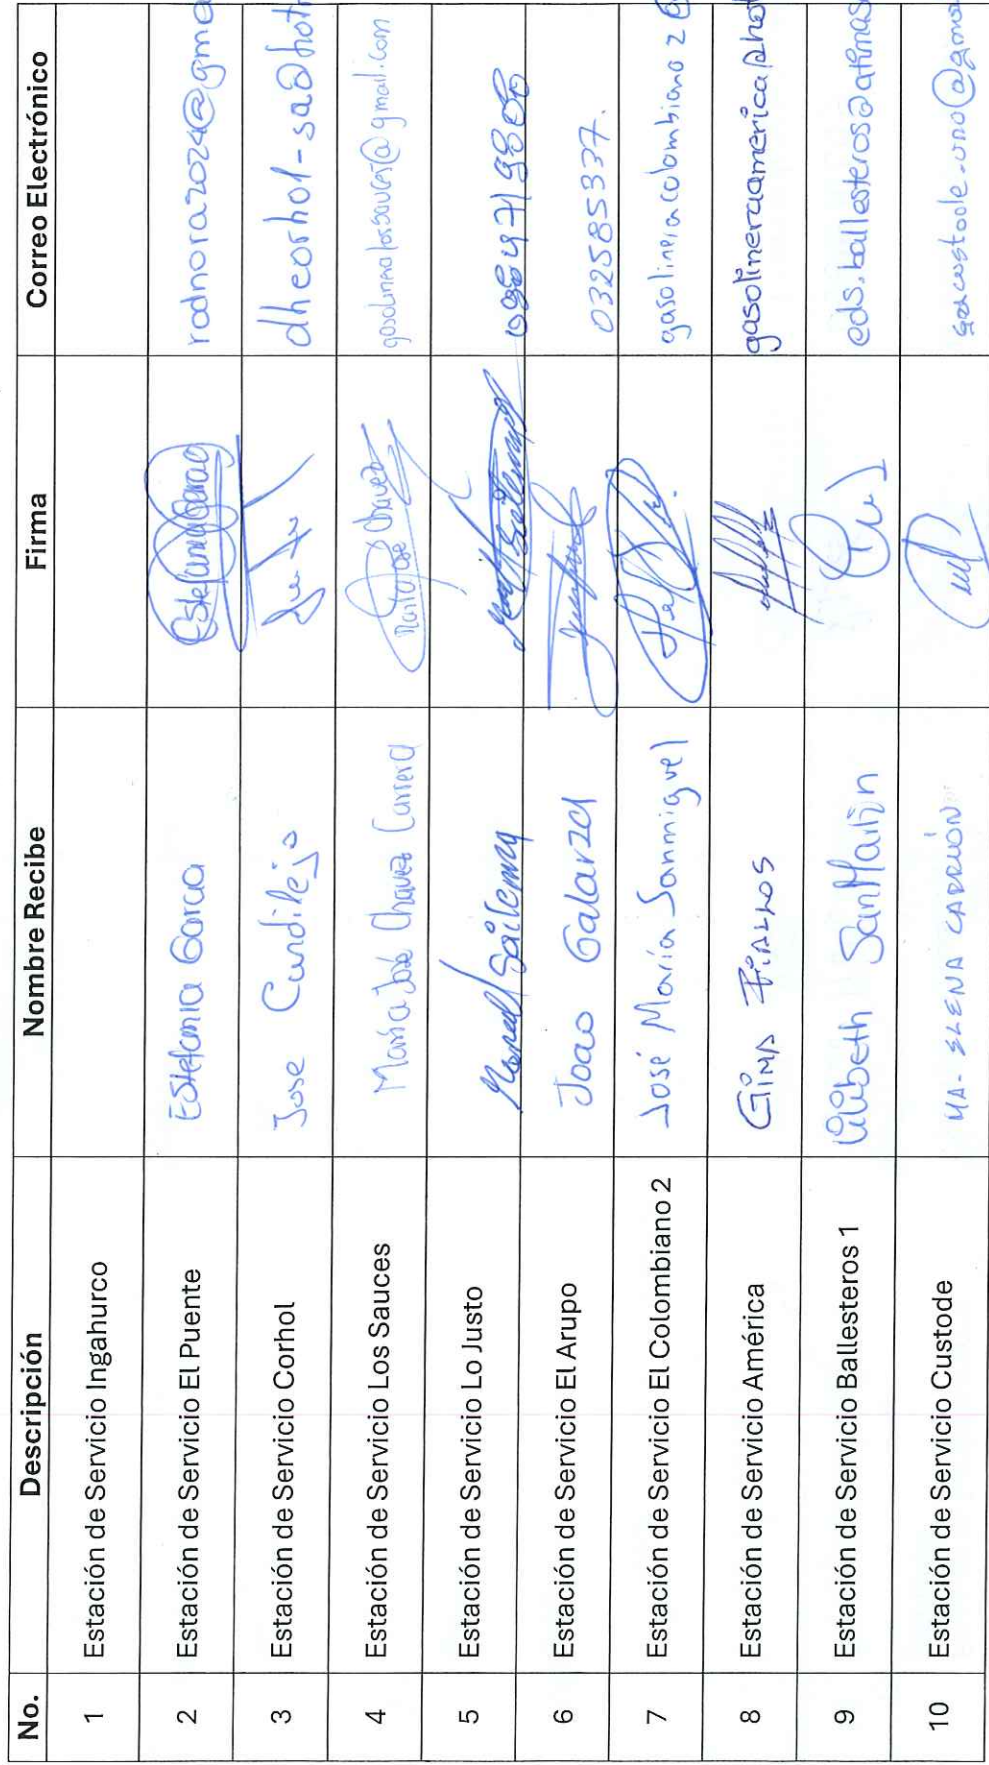 No. Descripción Nombre Recibe Firma Correo Electrónico
1 Estación de Servicio Ingahurco
2 Estación de Servicio El Puente Estefania Garcia Estefania Garcia rodnora2024@gma
3 Estación de Servicio Corhol Jose Candilejo dheorhol-sa@hot
4 Estación de Servicio Los Sauces María José Chavez Carrera María José Chavez gasolineralossauces@gmail.com
5 Estación de Servicio Lo Justo Sailema
6 Estación de Servicio El Arupo Joao Galarza 032585337.
7 Estación de Servicio El Colombiano 2 José María Sanmiguel gasolineracolombiano2@
8 Estación de Servicio América Gina Fiallos gasolineraamerica@hot
9 Estación de Servicio Ballesteros 1 Lilibeth SanMartín eds.ballesteros@
10 Estación de Servicio Custode MA. ELENA CARRIÓN